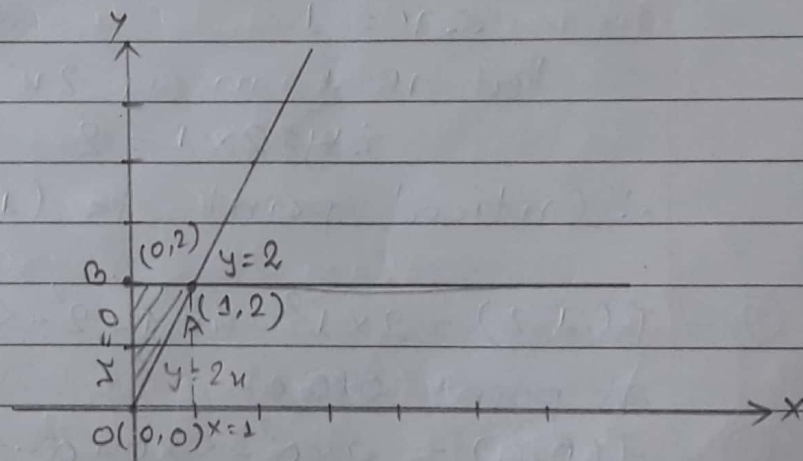 Y
(0,2) y=2
B
(1,2)
A
x=0
y=2x
O(0,0) x=1
X